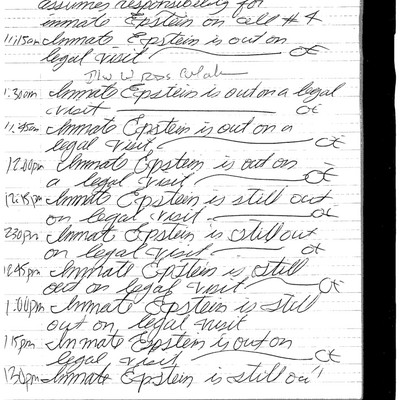 assumes responsibility for
inmate Epstein on cell #4
11:15am Inmate Epstein is out on
legal visit CE
1:30am Inmate Epstein is out on a legal
visit CE
11:45am Inmate Epstein is out on a
legal visit. CE
12:00pm Inmate Epstein is out on
a legal visit CE
12:15pm Inmate Epstein is still out
on legal visit CE
230pm Inmate Epstein is still out
on legal visit CE
1245pm Inmate Epstein is still
out on legal visit CE
1:00pm Inmate Epstein is still
out on legal visit
115pm Inmate Epstein is out on
legal visit CE
130pm Inmate Epstein is still ou